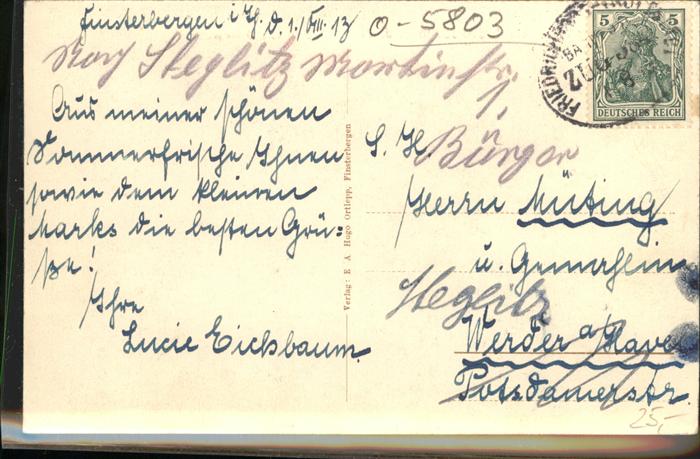 Finsterbergen i. Th. d. 1./VIII. 13
0-5803
Nach Steglitz Martinstr. 1,
Aus meiner schönen
Sommerfrische Ihnen
sowie dem kleinen
Marks die besten Grü-
ße!
Ihre
Lucie Eichbaum.
Verlag: E A Hugo Ortlepp, Finsterbergen
5 5
DEUTSCHES REICH
S. H.
Bürger
Herrn Müting
u. Gemahlin
Steglitz
Werder a/Havel
Potsdamerstr.
25,-